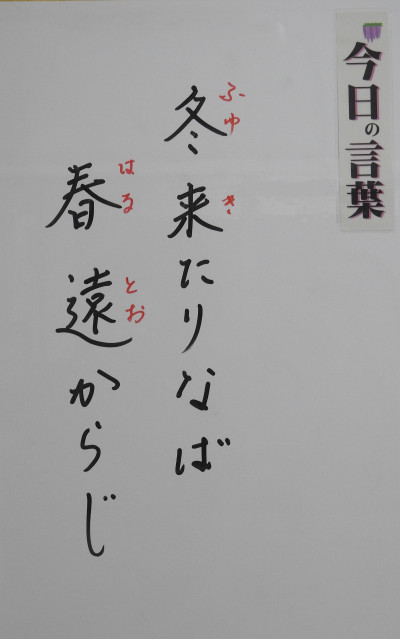 今日の言葉
ふゆ き
冬来たりなば
はる とお
春遠からじ